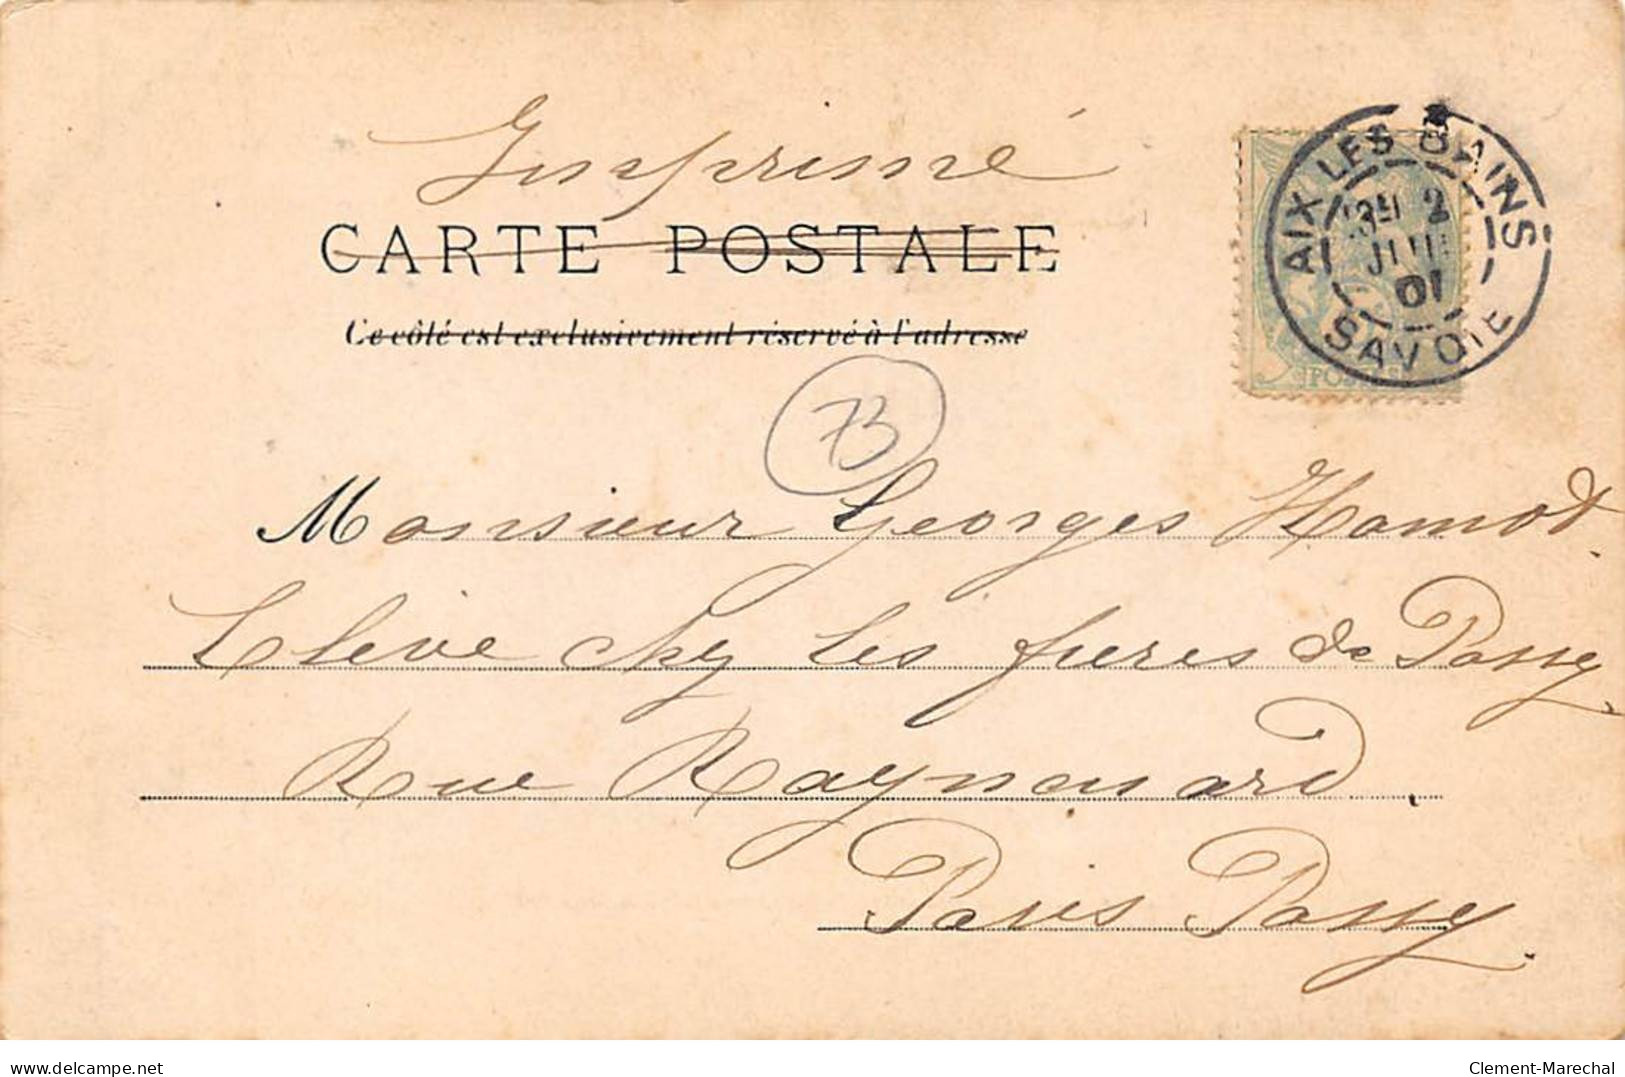 Imprimé
CARTE POSTALE
Ce côté est exclusivement réservé à l'adresse
AIX LES BAINS
2
01
SAVOIE
POSTES
73
Monsieur Georges Hamot.
Elève chez les frères de Passy.
Rue Raynouard.
Paris Passy.
www.delcampe.net
Clement-Marechal